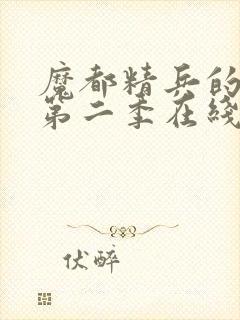 魔都精兵的
第二季在线
伏醉